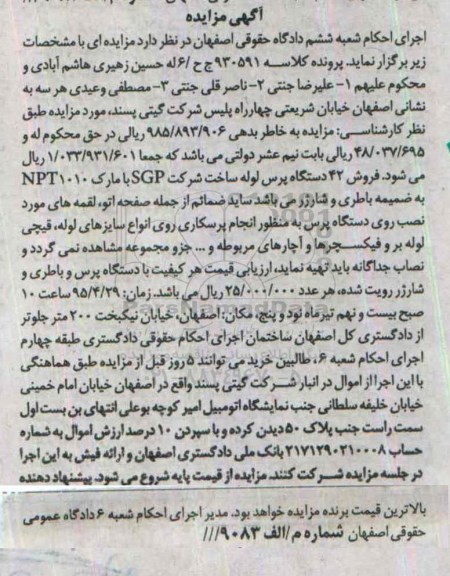 آگهی مزایده
اجرای احکام شعبه ششم دادگاه حقوقی اصفهان در نظر دارد مزایده ای با مشخصات
زیر برگزار نماید. پرونده کلاسه ۹۳۰۵۹۱ ج ح /۶ له حسین زهیری هاشم آبادی و
محکوم علیهم ۱- علیرضا جنتی ۲- ناصر قلی جنتی ۳- مصطفی وعیدی هر سه به
نشانی اصفهان خیابان شریعتی چهارراه پلیس شرکت گیتی پسند، مورد مزایده طبق
نظر کارشناسی: مزایده به خاطر بدهی ۹۸۵/۸۹۳/۹۰۶ ریالی در حق محکوم له و
۴۸/۰۳۷/۶۹۵ ریالی بابت نیم عشر دولتی می باشد که جمعا ۱/۰۳۳/۹۳۱/۶۰۱ ریال
می شود. فروش ۴۲ دستگاه پرس لوله ساخت شرکت SGP با مارک NPT۱۰۱۰
به ضمیمه باطری و شارژر می باشد ساید ضمائم از جمله صفحه اتو، لقمه های مورد
نصب روی دستگاه پرس به منظور انجام پرسکاری روی انواع سایزهای لوله، قیچی
لوله بر و فیکسچرها و آچارهای مربوطه و ... جزو مجموعه مشاهده نمی گردد و
نصاب جداگانه باید تهیه نماید، ارزیابی قیمت هر کیفیت با دستگاه پرس و باطری و
شارژر رویت شده، هر عدد ۲۵/۰۰۰/۰۰۰ ریال می باشد. زمان: ۹۵/۴/۲۹ ساعت ۱۰
صبح بیست و نهم تیرماه نود و پنج، مکان: اصفهان، خیابان نیکبخت ۲۰۰ متر جلوتر
از دادگستری کل اصفهان ساختمان اجرای احکام حقوقی دادگستری طبقه چهارم
اجرای احکام شعبه ۶، طالبین خرید می توانند ۵ روز قبل از مزایده طبق هماهنگی
با این اجرا از اموال در انبار شرکت گیتی پسند واقع در اصفهان خیابان امام خمینی
خیابان خلیفه سلطانی جنب نمایشگاه اتومبیل امیر کوچه بوعلی انتهای بن بست اول
سمت راست جنب پلاک ۵۰ دیدن کرده و با سپردن ۱۰ درصد ارزش اموال به شماره
حساب ۲۱۷۱۲۹۰۲۱۰۰۰۸ بانک ملی دادگستری اصفهان و ارائه فیش به این اجرا
در جلسه مزایده شرکت کنند. مزایده از قیمت پایه شروع می شود. پیشنهاد دهنده
بالاترین قیمت برنده مزایده خواهد بود. مدیر اجرای احکام شعبه ۶ دادگاه عمومی
حقوقی اصفهان شماره م/الف ۹۰۸۳///